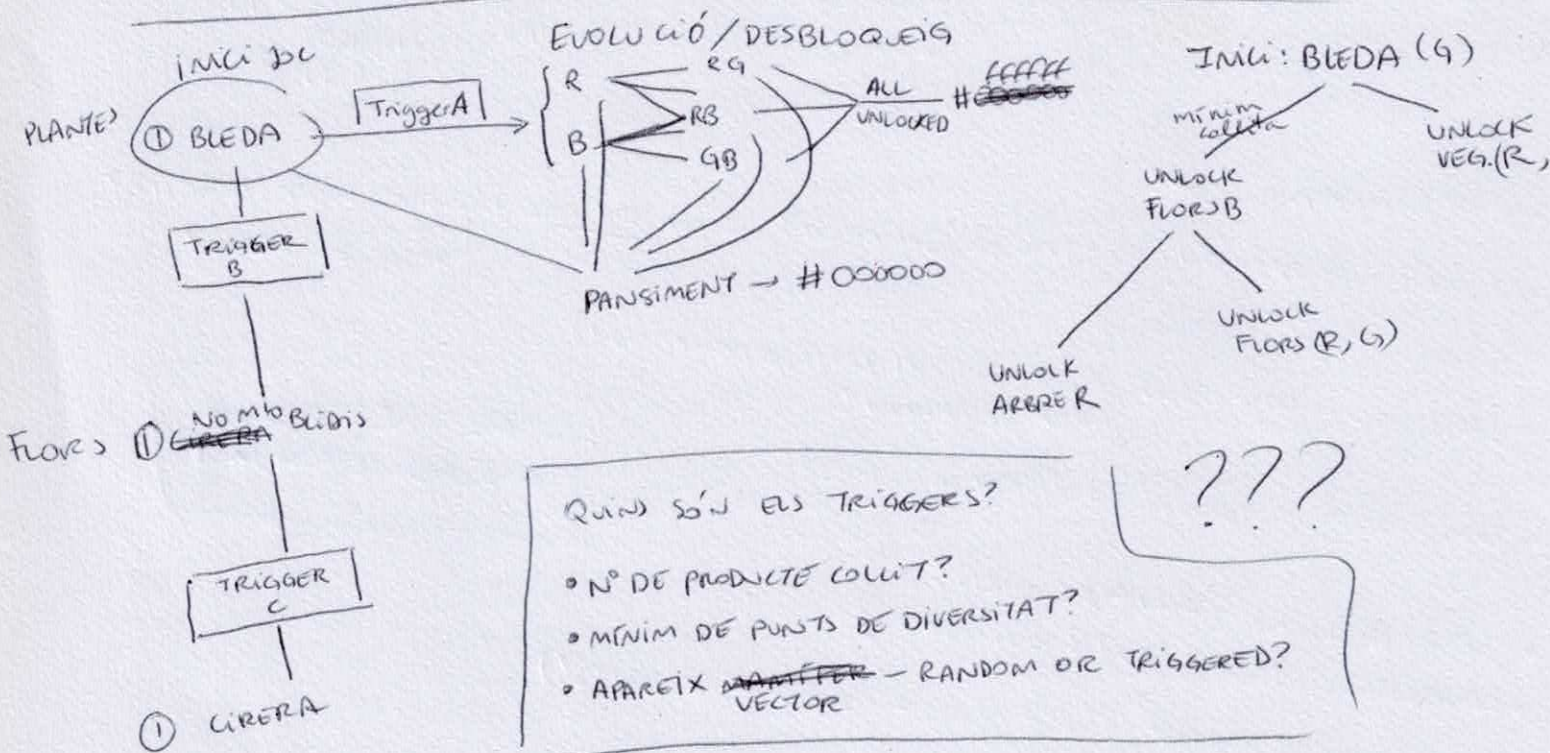 INICI JOC
PLANTES
① BLEDA
Trigger A
TRIGGER
B
FLORS ① CIRERA NOMBLIDIS
TRIGGER
C
① CIRERA
EVOLUCIÓ/DESBLOQUEIG
R
B
RG
RB
GB
ALL
UNLOCKED
#000000
ffffff
PANSIMENT → #000000
INICI: BLEDA (G)
mínim
collita
UNLOCK
FLORS B
UNLOCK
VEG. (R,
UNLOCK
ARBRE R
UNLOCK
FLORS (R, G)
QUINS SÓN ELS TRIGGERS?
• Nº DE PRODUCTE COLLIT?
• MÍNIM DE PUNTS DE DIVERSITAT?
• APAREIX MAMÍFER – RANDOM OR TRIGGERED?
VECTOR
???